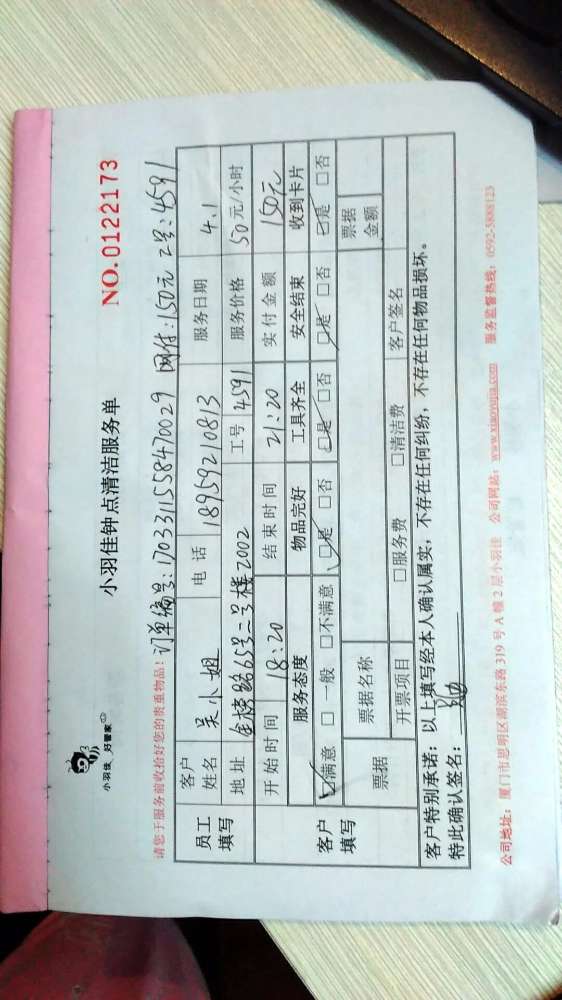 小羽佳 好管家
小羽佳钟点清洁服务单
NO. 0122173
请您于服务前收拾好您的贵重物品！ 订单编号：1703311558470029 网付：150元 工号：4591
员工填写 客户姓名 吴小姐 电话 18959210813 服务日期 4.1
地址 金榜路65号二号楼2002 工号 4591 服务价格 50元/小时
客户填写 开始时间 18:20 结束时间 21:20 实付金额 150元
服务态度 物品完好 工具齐全 安全结束 收到卡片
☑满意 □一般 □不满意 ☑是 □否 ☑是 □否 ☑是 □否 ☑是 □否
票据 票据名称 票据金额
开票项目 □服务费 □清洁费 客户签名
客户特别承诺：以上填写经本人确认属实，不存在任何纠纷，不存在任何物品损坏。
特此确认签名：
公司地址：厦门市思明区湖滨东路319号A幢2层小羽佳 公司网站：www.xiaoyujia.com 服务监督热线：0592-5888123